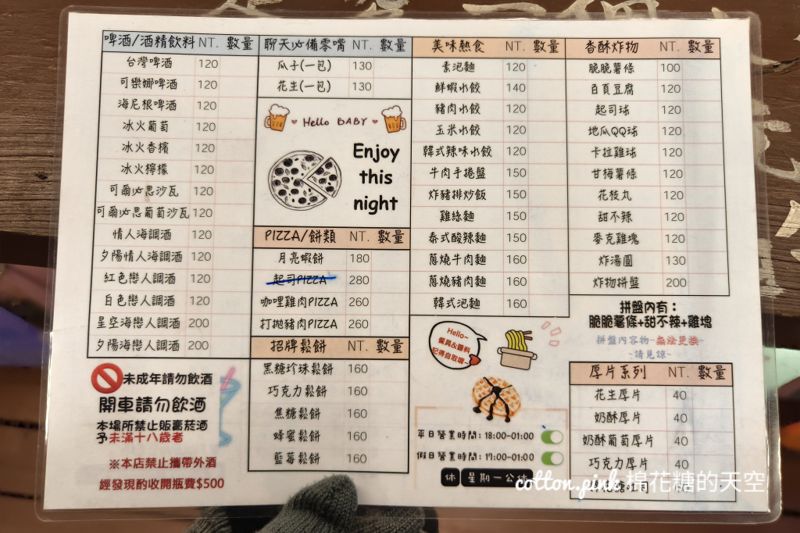 啤酒/酒精飲料 NT. 數量
台灣啤酒 120
可樂娜啤酒 120
海尼根啤酒 120
冰火葡萄 120
冰火香檳 120
冰火檸檬 120
可爾必思沙瓦 120
可爾必思葡萄沙瓦 120
情人海調酒 120
夕陽情人海調酒 120
紅色戀人調酒 120
白色戀人調酒 120
星空海戀人調酒 200
夕陽海戀人調酒 200
未成年請勿飲酒
開車請勿飲酒
本場所禁止販賣菸酒
予未滿十八歲者
※本店禁止攜帶外酒
經發現酌收開瓶費$500
聊天必備零嘴 NT. 數量
瓜子(一包) 130
花生(一包) 130
Hello BABY
Enjoy
this
night
PIZZA/餅類 NT. 數量
月亮蝦餅 180
起司PIZZA 280
咖哩雞肉PIZZA 260
打拋豬肉PIZZA 260
招牌鬆餅 NT. 數量
黑糖珍珠鬆餅 160
巧克力鬆餅 160
焦糖鬆餅 160
蜂蜜鬆餅 160
藍莓鬆餅 160
美味熱食 NT. 數量
素泡麵 120
鮮蝦水餃 140
豬肉水餃 120
玉米水餃 120
韓式辣味水餃 120
牛肉手捲盤 150
炸豬排炒飯 150
雞絲麵 150
泰式酸辣麵 150
蔥燒牛肉麵 160
蔥燒豬肉麵 160
韓式泡麵 160
Hello~
餐具&醬料
記得自取喔~
平日營業時間: 18:00-01:00
假日營業時間: 17:00-01:00
休 星期一公休
香酥炸物 NT. 數量
脆脆薯條 100
百頁豆腐 120
起司球 120
地瓜QQ球 120
卡拉雞球 120
甘梅薯條 120
花枝丸 120
甜不辣 120
麥克雞塊 120
炸湯圓 130
炸物拼盤 200
拼盤內有：
脆脆薯條+甜不辣+雞塊
拼盤內容物~無法更換~
~請見諒~
厚片系列 NT. 數量
花生厚片 40
奶酥厚片 40
奶酥葡萄厚片 40
巧克力厚片 40
cotton.pink 棉花糖的天空